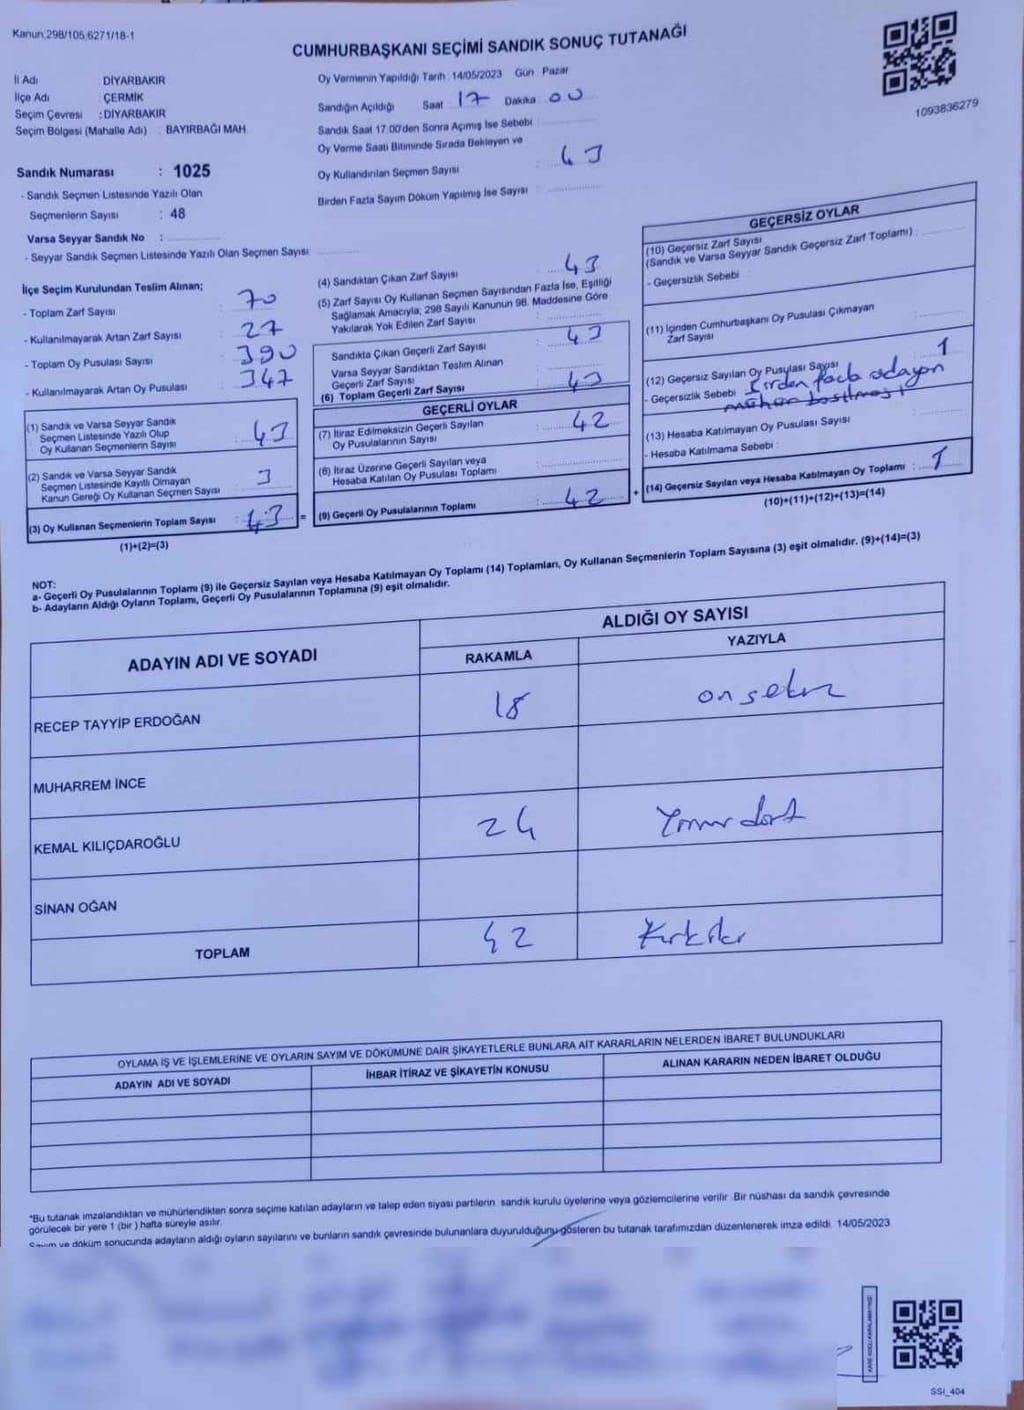 Kanun;298/105;6271/18-1
CUMHURBAŞKANI SEÇİMİ SANDIK SONUÇ TUTANAĞI
1093836279
İl Adı DİYARBAKIR
İlçe Adı ÇERMİK
Seçim Çevresi : DİYARBAKIR
Seçim Bölgesi (Mahalle Adı) : BAYIRBAĞI MAH.
Sandık Numarası : 1025
- Sandık Seçmen Listesinde Yazılı Olan
Seçmenlerin Sayısı : 48
Varsa Seyyar Sandık No :
- Seyyar Sandık Seçmen Listesinde Yazılı Olan Seçmen Sayısı
Oy Vermenin Yapıldığı Tarih : 14/05/2023 Gün Pazar
Sandığın Açıldığı Saat 17 Dakika 00
Sandık Saat 17.00'den Sonra Açımış İse Sebebi
Oy Verme Saati Bitiminde Sırada Bekleyen ve
Oy Kullandırılan Seçmen Sayısı 43
Birden Fazla Sayım Döküm Yapılmış İse Sayısı :
İlçe Seçim Kurulundan Teslim Alınan;
- Toplam Zarf Sayısı : 70
- Kullanılmayarak Artan Zarf Sayısı : 27
- Toplam Oy Pusulası Sayısı : 390
- Kullanılmayarak Artan Oy Pusulası : 347
(1) Sandık ve Varsa Seyyar Sandık
Seçmen Listesinde Yazılı Olup
Oy Kullanan Seçmenlerin Sayısı : 43
(2) Sandık ve Varsa Seyyar Sandık
Seçmen Listesinde Kayıtlı Olmayan
Kanun Gereği Oy Kullanan Seçmen Sayısı 3
(3) Oy Kullanan Seçmenlerin Toplam Sayısı : 43
(1)+(2)=(3)
(4) Sandıktan Çıkan Zarf Sayısı : 43
(5) Zarf Sayısı Oy Kullanan Seçmen Sayısından Fazla İse, Eşitliği
Sağlamak Amacıyla; 298 Sayılı Kanunun 98. Maddesine Göre
Yakılarak Yok Edilen Zarf Sayısı
Sandıkta Çıkan Geçerli Zarf Sayısı : 43
Varsa Seyyar Sandıktan Teslim Alınan
Geçerli Zarf Sayısı
(6) Toplam Geçerli Zarf Sayısı : 43
GEÇERLİ OYLAR
(7) İtiraz Edilmeksizin Geçerli Sayılan
Oy Pusulalarının Sayısı : 42
(8) İtiraz Üzerine Geçerli Sayılan veya
Hesaba Katılan Oy Pusulası Toplamı :
= (9) Geçerli Oy Pusulalarının Toplamı : 42 +
GEÇERSİZ OYLAR
(10) Geçersiz Zarf Sayısı
(Sandık ve Varsa Seyyar Sandık Geçersiz Zarf Toplamı) :
- Geçersizlik Sebebi :
(11) İçinden Cumhurbaşkanı Oy Pusulası Çıkmayan
Zarf Sayısı :
(12) Geçersiz Sayılan Oy Pusulası Sayısı 1
- Geçersizlik Sebebi : Birden fazla adayın
mühür basılması
(13) Hesaba Katılmayan Oy Pusulası Sayısı :
- Hesaba Katılmama Sebebi :
(14) Geçersiz Sayılan veya Hesaba Katılmayan Oy Toplamı : 1
(10)+(11)+(12)+(13)=(14)
NOT:
a- Geçerli Oy Pusulalarının Toplamı (9) ile Geçersiz Sayılan veya Hesaba Katılmayan Oy Toplamı (14) Toplamları, Oy Kullanan Seçmenlerin Toplam Sayısına (3) eşit olmalıdır. (9)+(14)=(3)
b- Adayların Aldığı Oyların Toplamı, Geçerli Oy Pusulalarının Toplamına (9) eşit olmalıdır.
ADAYIN ADI VE SOYADI ALDIĞI OY SAYISI
RAKAMLA YAZIYLA
RECEP TAYYİP ERDOĞAN 18 onsekiz
MUHARREM İNCE
KEMAL KILIÇDAROĞLU 24 Yirmi dört
SİNAN OĞAN
TOPLAM 42 Kırkiki
OYLAMA İŞ VE İŞLEMLERİNE VE OYLARIN SAYIM VE DÖKÜMÜNE DAİR ŞİKAYETLERLE BUNLARA AİT KARARLARIN NELERDEN İBARET BULUNDUKLARI
ADAYIN ADI VE SOYADI İHBAR İTİRAZ VE ŞİKAYETİN KONUSU ALINAN KARARIN NEDEN İBARET OLDUĞU
*Bu tutanak imzalandıktan ve mühürlendikten sonra seçime katılan adayların ve talep eden siyasi partilerin sandık kurulu üyelerine veya gözlemcilerine verilir. Bir nüshası da sandık çevresinde
görülecek bir yere 1 (bir) hafta süreyle asılır.
Sayım ve döküm sonucunda adayların aldığı oyların sayılarını ve bunların sandık çevresinde bulunanlara duyurulduğunu gösteren bu tutanak tarafımızdan düzenlenerek imza edildi. 14/05/2023
SSI_404